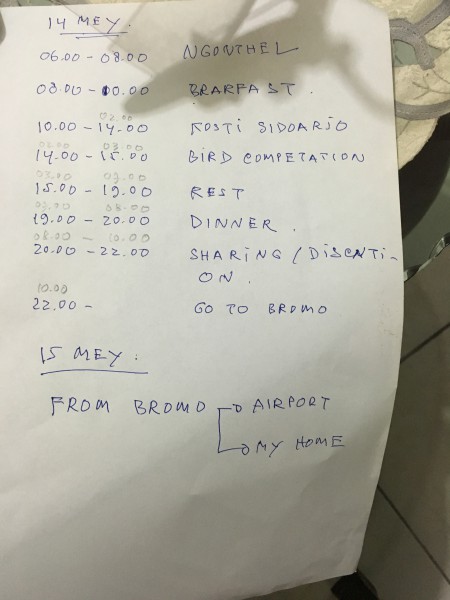 14 MEY.
06.00 - 08.00 NGONTHEL
08.00 - 10.00 BRARFAST.
02.00
10.00 - 14.00 KOSTI SIDOARJO
02.00 03.00
14.00 - 15.00 BIRD COMPETATION
03.00 07.00
15.00 - 19.00 REST
07.00 08.00
19.00 - 20.00 DINNER.
08.00 - 10.00
20.00 - 22.00 SHARING / DISCNTI-
ON.
10.00
22.00 - GO TO BROMO
15 MEY:
FROM BROMO AIRPORT
MY HOME